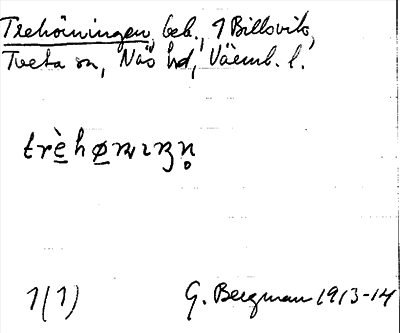 Trehörningen, beb., 1 Billsvik,
Tveta sn, Näs hd, Värml. l.
trèhøṇıŋn̥
1(1) G. Bergman 1913-14